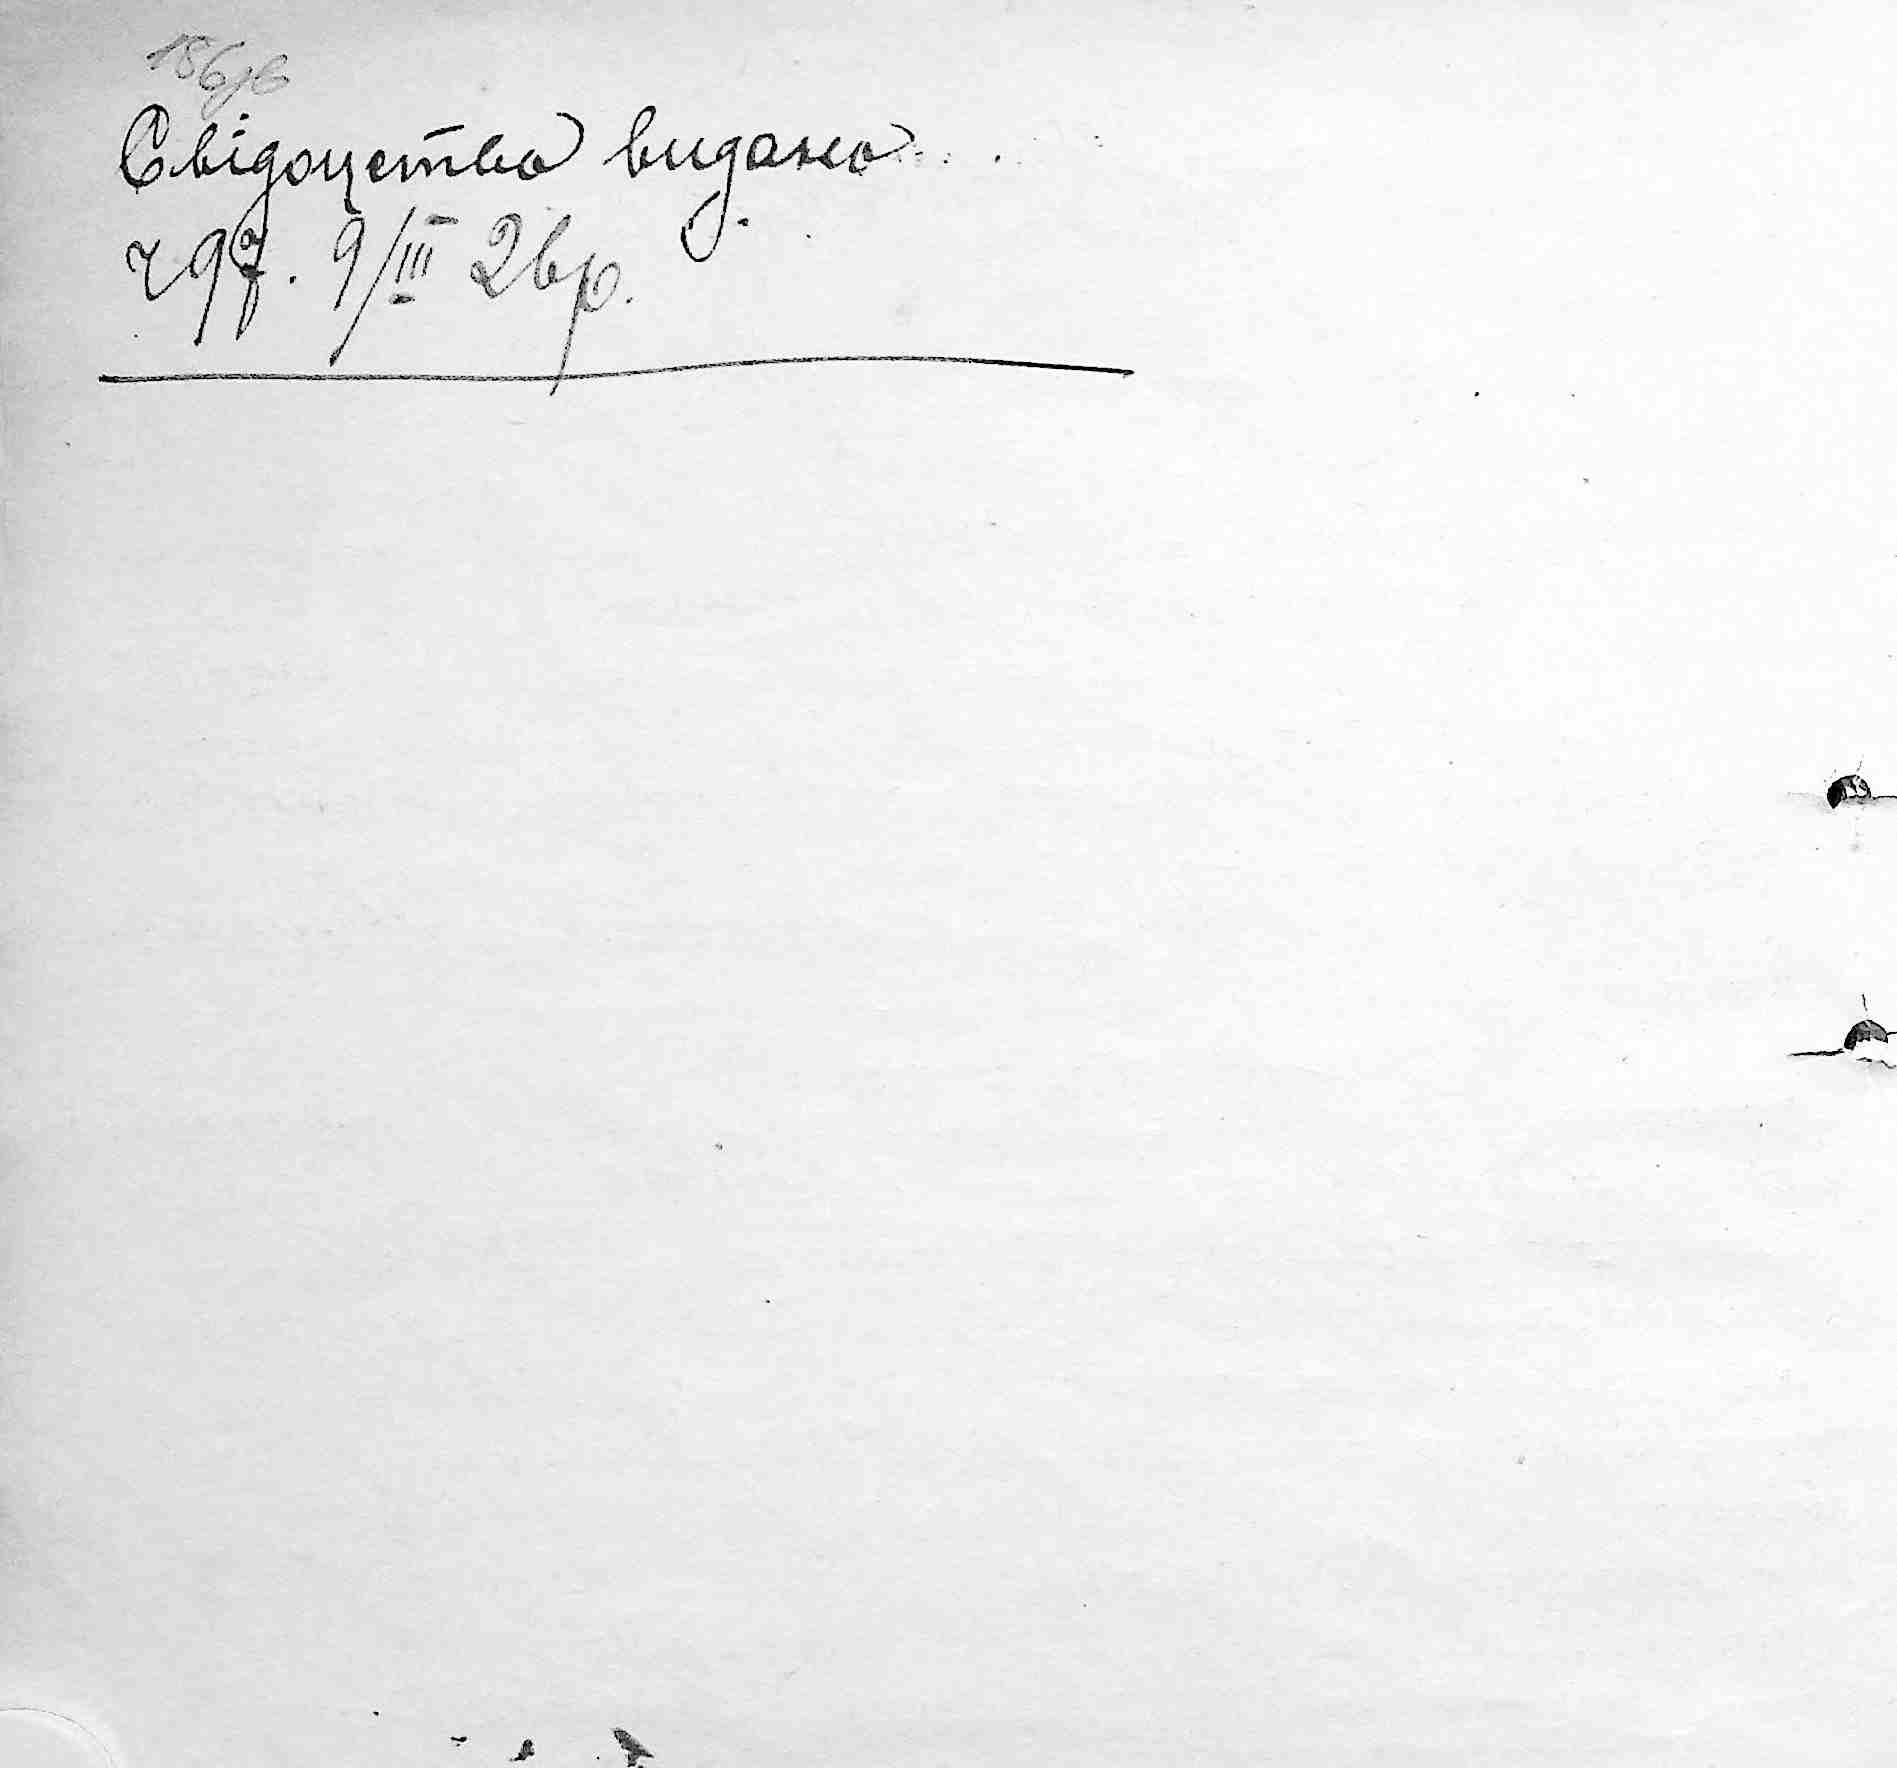 Свідоцтво видано
ч 97. 9/III 26р.